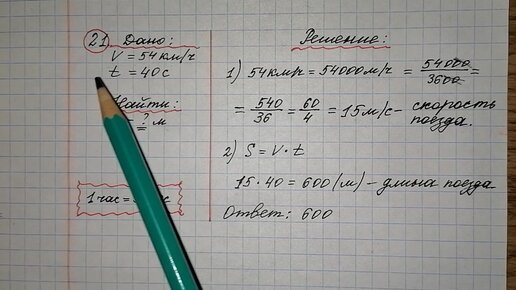 21 Дано:
V = 54 км/ч
t = 40 с
Найти:
= ? м
1 час = с
Решение:
1) 54 км/ч = 54000 м/ч = 54000/3600 =
= 540/36 = 60/4 = 15 м/с - скорость
поезда.
2) S = V · t
15 · 40 = 600 (м) - длина поезда
Ответ: 600